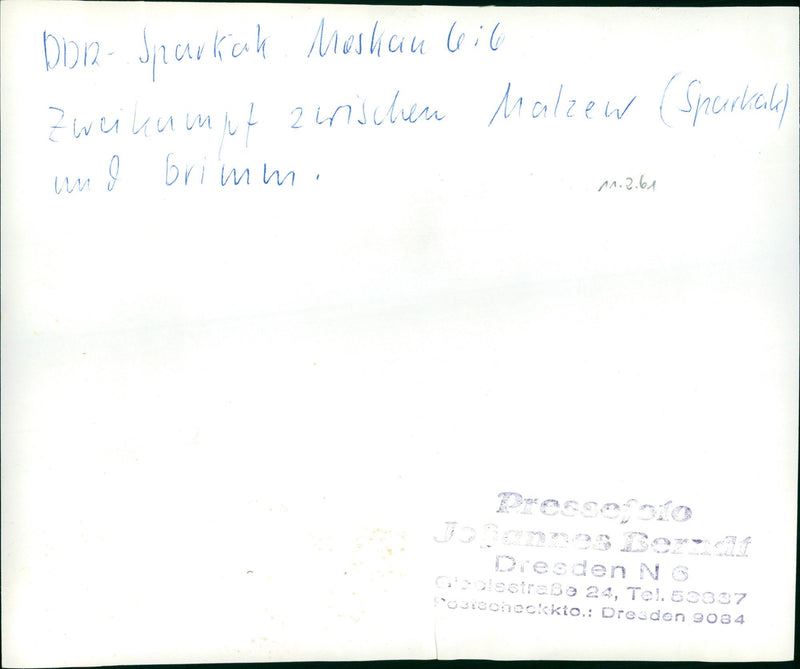 DDR - Spartak Moskau 6:6
Zweikampf zwischen Malzew (Spartak)
und Grimm.
11.2.61
Pressefoto
Johannes Berndt
Dresden N 6
24, Tel. 53837
Postscheckkto.: Dresden 9084